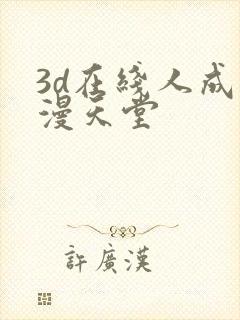 3d在綫人成
漫天堂
許廣漢